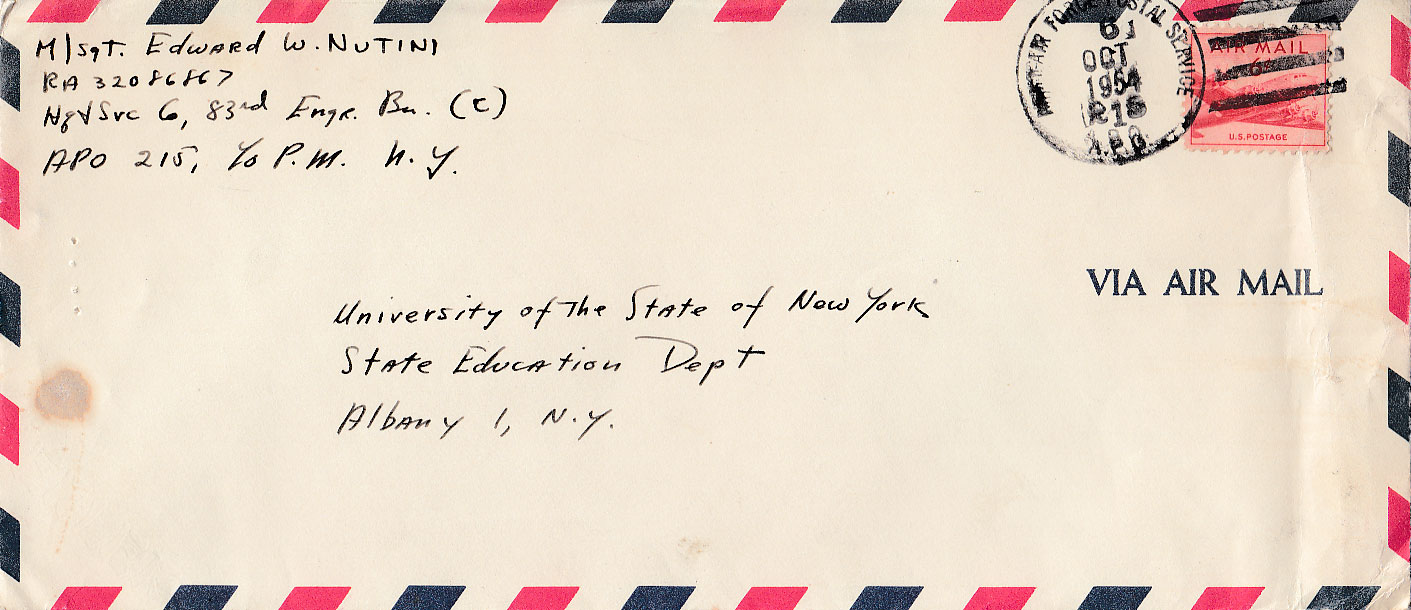 M/Sgt. Edward W. Nutini
RA 32086867
Hq & Svc Co, 83rd Engr. Bn. (C)
APO 215, c/o P.M. N.Y.
ARMY-AIR FORCE POSTAL SERVICE
6
OCT
1954
215
A.P.O.
AIR MAIL
6¢
U.S. POSTAGE
VIA AIR MAIL
University of The State of New York
State Education Dept
Albany 1, N.Y.